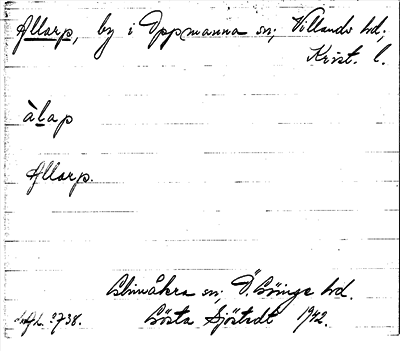 Allarp, by i Oppmanna sn; Villands hd;
Krist. l.
àlap
Allarp.
Glimåkra sn; Ö. Göinge hd.
738. Gösta Sjöstedt 1942.